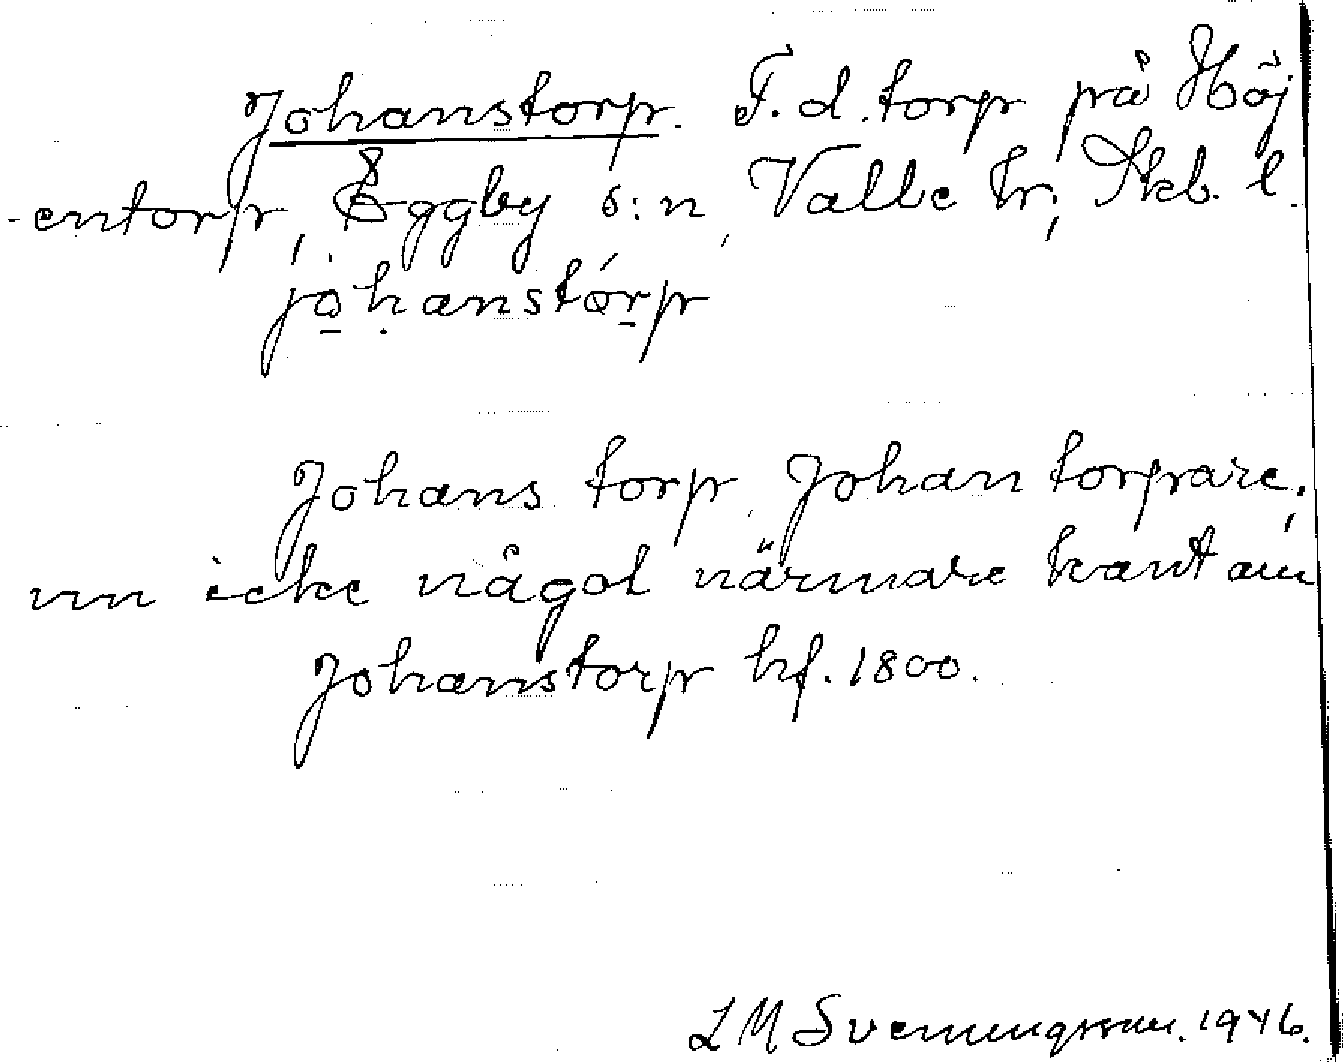 Johanstorp. F.d. torp på Höj
-entorp, Eggby s:n, Valle hr; Skb. l.
johanstórp
Johans torp, Johan torpare;
nu icke något närmare känt om
Johanstorp hf. 1800.
L M Svenungsson. 1946.